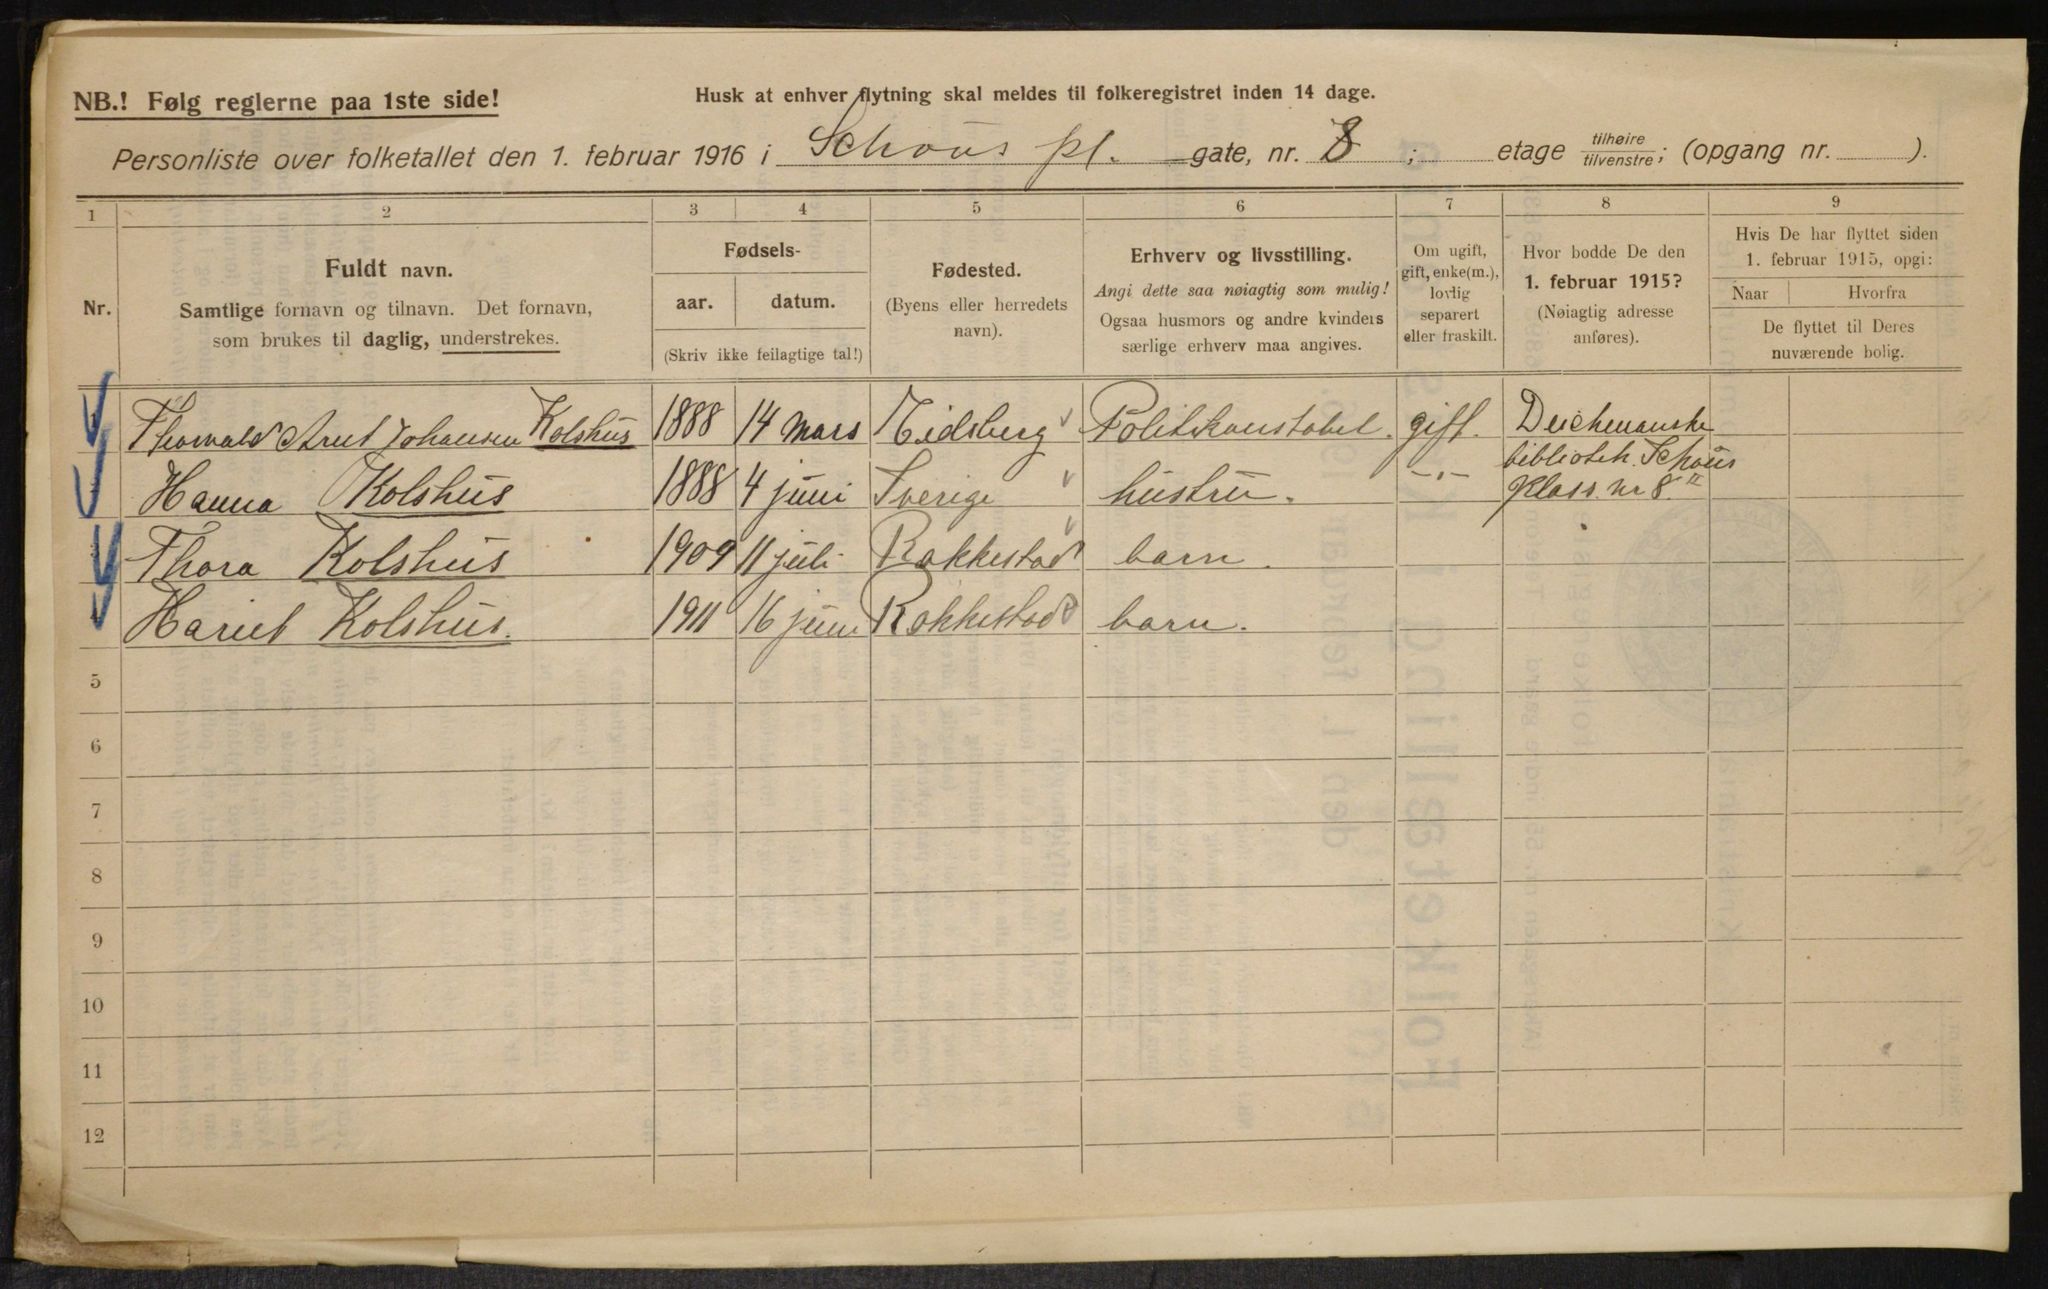 NB.! Følg reglerne paa 1ste side!
Husk at enhver flytning skal meldes til folkeregistret inden 14 dage.
Personliste over folketallet den 1. februar 1916 i Schous pl. gate, nr. 8 ; etage tilhøire/tilvenstre; (opgang nr. ).
1 2 3 4 5 6 7 8 9
Nr.
Fuldt navn.
Samtlige fornavn og tilnavn. Det fornavn,
som brukes til daglig, understrekes.
Fødsels-
aar. datum.
(Skriv ikke feilagtige tal!)
Fødested.
(Byens eller herredets
navn).
Erhverv og livsstilling.
Angi dette saa nøiagtig som mulig!
Ogsaa husmors og andre kvinders
særlige erhverv maa angives.
Om ugift,
gift, enke(m.),
lovlig
separert
eller fraskilt.
Hvor bodde De den
1. februar 1915?
(Nøiagtig adresse
anføres).
Hvis De har flyttet siden
1. februar 1915, opgi:
Naar Hvorfra
De flyttet til Deres
nuværende bolig.
Thorvald Arnt Johansen Kolshus 1888 14 mars Eidsberg Politikonstabel. gift. Deichmanske
bibliotek. Schous
Hanna Kolshus 1888 4 juni Sverige hustru. -"- Plass. nr 8. "
Thora Kolshus 1909 11 juli Rakkestad barn.
Hariet Kolshus. 1911 16 juni Rakkestad barn.
5
6
7
8
9
10
11
12